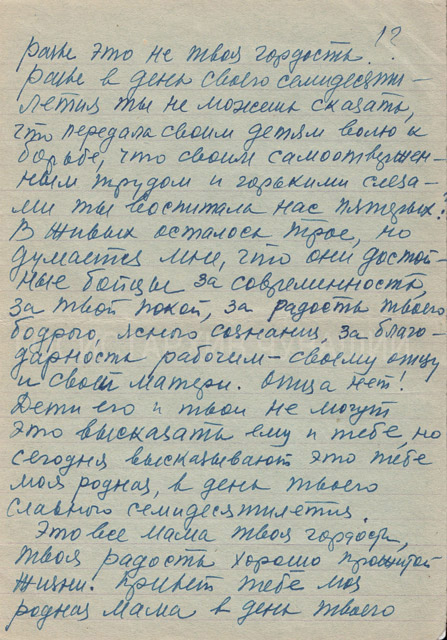 12
разве это не твоя гордость.
разве в день своего семидесяти-
летия ты не можешь сказать,
что передала своим детям волю к
борьбе, что своим самоотвержен-
ным трудом и горькими слеза-
ми ты воспитала нас пятерых?
В живых осталось трое, но
думается мне, что они достой-
ные бойцы за современность,
за твой покой, за радость твоего
бодрого, ясного сознания, за благо-
дарность рабочим – своему отцу
и своей матери. Отца нет!
Дети его и твои не могут
это высказать ему и тебе, но
сегодня высказывают это тебе
моя родная, в день твоего
славного семидесятилетия.
Это все мама твоя гордость,
твоя радость хорошо прожитой
жизни. Привет тебе моя
родная мама в день твоего